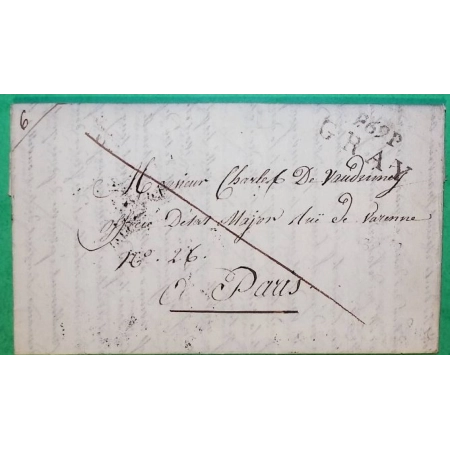 6
P69P
GRAY
Monsieur Charles De Vaudimey
officier D'état Major Ruë de Varenne
No. 26.
à Paris.